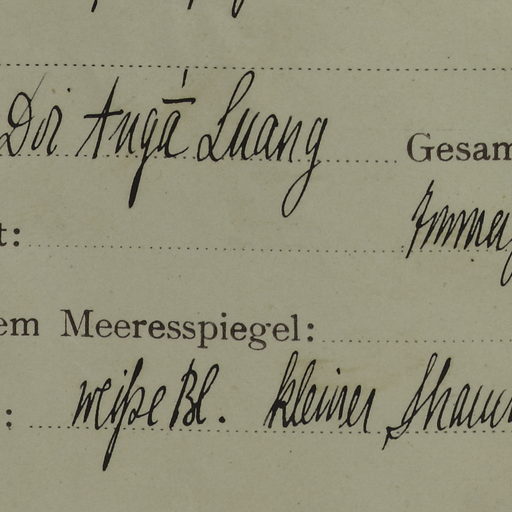 Doi Angā́ Luang Gesam
t:
em Meeresspiegel:
: weiße Bl. kleiner